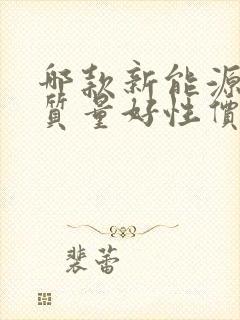 哪款新能源
質量好性價
裴蕾